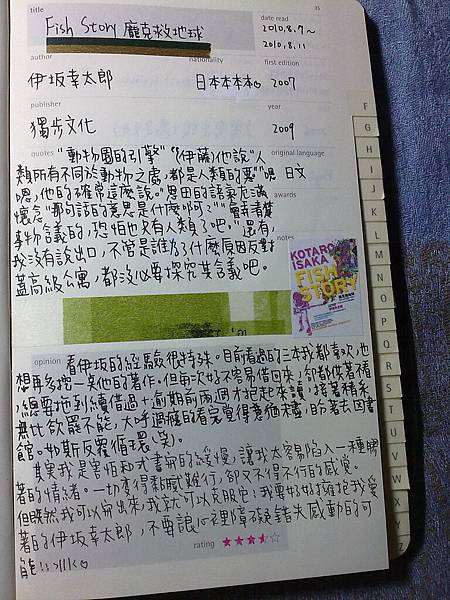 title
35
Fish Story 龐克救地球
date read
2010.8.7~
2010.8.11
author
nationality
first edition
伊坂幸太郎
日本本本本
2007
publisher
year
獨步文化
2009
quotes
original language
"動物園的引擎" "伊藤他說"人
類所有不同於動物之處,都是人類的糞""嗯
日文
嗯,他的確常這麼說。"恩田的語氣充滿
懷念"哪句話的意思是什麼啊?"
awards
事物含義的,恐怕也只有人類了吧。""還有,
我沒有說出口,不管是誰為了什麼原因反對
notes
蓋高級公寓,都沒必要探究其含義吧。
KOTARO
ISAKA
FISH
STORY
opinion
看伊坂的經驗很特殊。目前看過的三本我都喜歡,也
想再多增一些他的著作。但每次好不容易借回來,卻都供著種
,總要拖到續借過+逾期前兩週才抱起來讀,接著精采
無比欲罷不能,大呼過癮的看完覺得意猶未盡,
館。如斯反覆循環(笑)。
其實我是害怕和式書寫的緩慢,讓我太容易陷入一種膠
著的情緒。一切變得黏膩難行,卻又不得不行的感覺。
但既然我可以寫出來,我就可以克服它,我要好好擁抱我愛
著的伊坂幸太郎,不要讓心裡障礙錯失感動的可
能!!
rating
F
G
H
I
J
K
L
M
N
O
P
Q
R
S
T
U
V
W
X
Y
Z